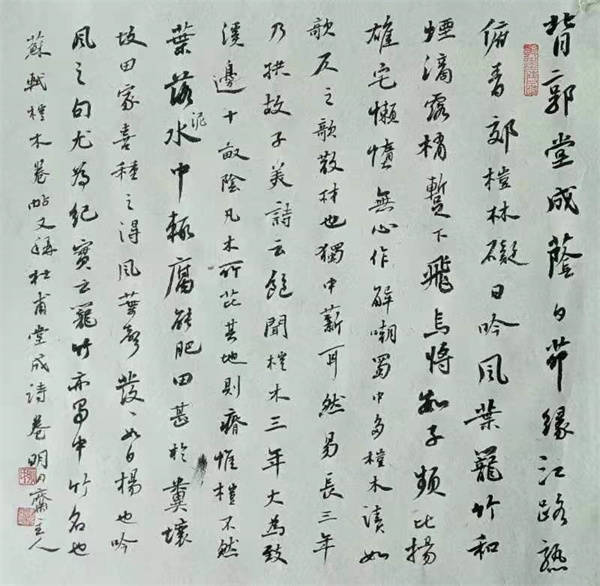 背郭堂成蔭白茆緣江路熟
俯青郊榿林礙日吟風葉籠竹和
煙滴露梢暫下飛烏將數子頻比揚
雄宅懶惰無心作解嘲蜀中多榿木讀如
欹仄之欹散材也獨中薪耳然易長三年
乃拱故子美詩云飽聞榿木三年大為致
溪邊十畝陰凡木所芘其地則瘠惟榿不然
葉落泥水中輒腐能肥田甚於糞壤
故田家喜種之得風葉聲發〻如白楊也吟
風之句尤為紀實云籠竹亦蜀中竹名也
蘇軾榿木卷帖又稱杜甫堂成詩卷明齋主人